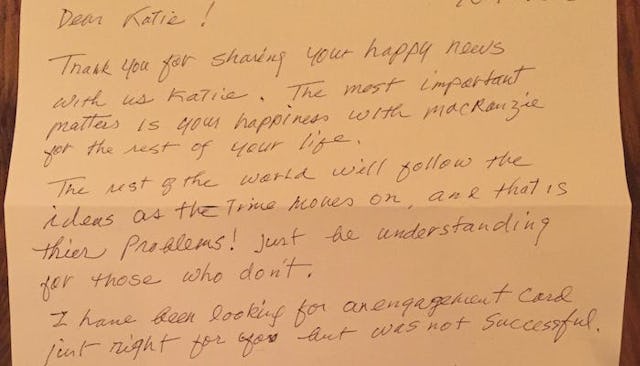 Dear Katie!
Thank you for sharing your happy news
with us Katie. The most important
matters is your happiness with MacKenzie
for the rest of your life.
The rest of the world will follow the
ideas as the Time Moves on, and that is
thier Problems! Just be understanding
for those who don't.
I have been looking for an engagement Card
just right for you but was not Successful.